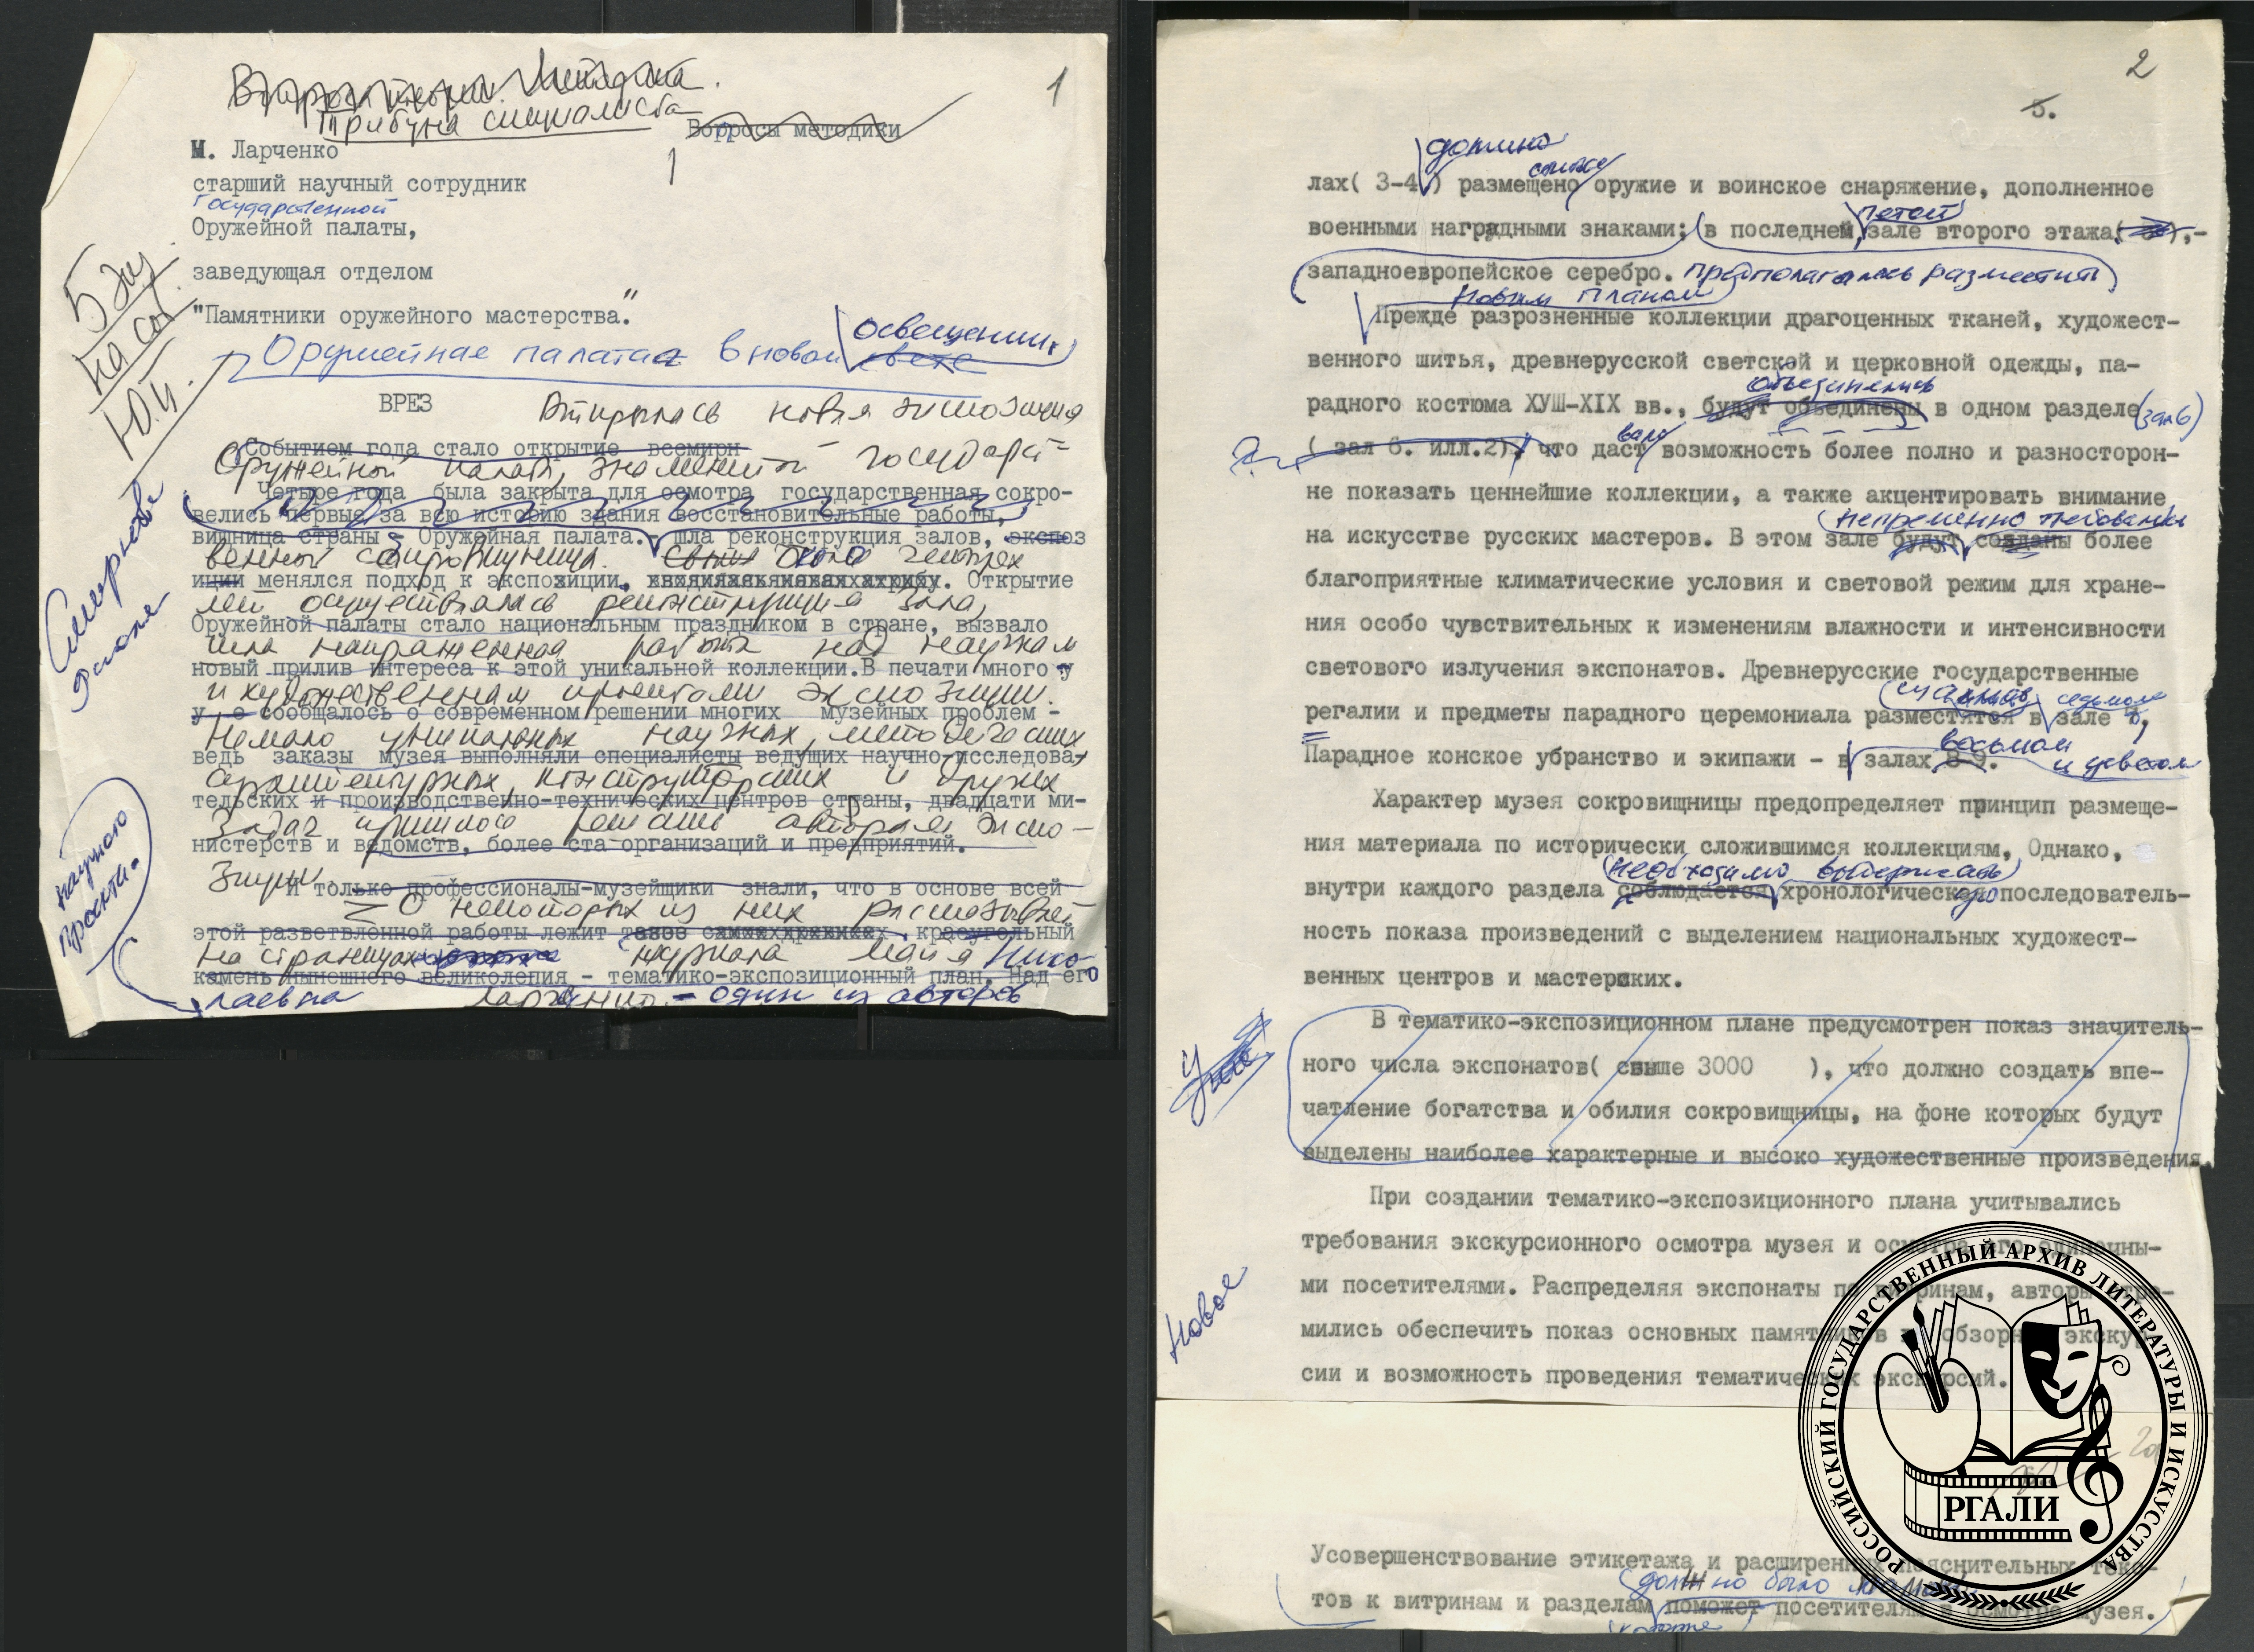 1
Трибуна специалиста
Вопросы методики
М. Ларченко
старший научный сотрудник
Государственной
Оружейной палаты,
заведующая отделом
"Памятники оружейного мастерства."
5 экз
на сог.
Ю.И.
освещении
Оружейная палата в новом свете
ВРЕЗ
Открылась новая экспозиция
Событием года стало открытие всемирн
Оружейной палаты, знаменитой государст-
Четыре года была закрыта для осмотра государственная сокро-
велись первые за всю историю здания восстановительные работы,
вищница страны - Оружейная палата. шла реконструкция залов, экспоз
венной сокровищницы. Свыше около четырех
иции менялся подход к экспозиции. Открытие
лет осуществлялась реконструкция зала,
Оружейной палаты стало национальным праздником в стране, вызвало
шла напряженная работа над научным
новый прилив интереса к этой уникальной коллекции. В печати много у
и художественным проектами экспозиции.
у о сообщалось о современном решении многих музейных проблем -
Немало уникальных научных, методических
ведь заказы музея выполняли специалисты ведущих научно-исследова-
архитектурных, конструкторских и других
тельских и производственно-технических центров страны, двадцати ми-
задач пришлось решать авторам экспо-
нистерств и ведомств, более ста организаций и предприятий.
зиции
И только профессионалы-музейщики знали, что в основе всей
О некоторых из них рассказывает
этой разветвленной работы лежит краеугольный
на страницах журнала Майя Нико-
камень нынешнего великолепия - тематико-экспозиционный план. Над его
лаевна Ларченко - один из авторов
научного
проекта.
2
5.
должно
лах( 3-4 ) размещено оружие и воинское снаряжение, дополненное
пятом
военными наградными знаками; в последнем зале второго этажа ,-
западноевропейское серебро. предполагалось разместить
Новым планом
Прежде разрозненные коллекции драгоценных тканей, художест-
венного шитья, древнерусской светской и церковной одежды, па-
объединялись
радного костюма ХУШ-XIX вв., будут объединены в одном разделе (зал 6)
вало
( зал 6. илл.2), что даст возможность более полно и разносторон-
не показать ценнейшие коллекции, а также акцентировать внимание
непременно требовались
на искусстве русских мастеров. В этом зале будут созданы более
благоприятные климатические условия и световой режим для хране-
ния особо чувствительных к изменениям влажности и интенсивности
светового излучения экспонатов. Древнерусские государственные
седьмом
регалии и предметы парадного церемониала разместятся в зале 7,
восьмом
и девятом
Парадное конское убранство и экипажи - в залах 8-9.
Характер музея сокровищницы предопределяет принцип размеще-
ния материала по исторически сложившимся коллекциям, Однако,
необходимо выдержать
внутри каждого раздела соблюдается хронологическая последователь-
ность показа произведений с выделением национальных художест-
венных центров и мастерских.
В тематико-экспозиционном плане предусмотрен показ значитель-
ного числа экспонатов( свыше 3000 ), что должно создать впе-
чатление богатства и обилия сокровищницы, на фоне которых будут
выделены наиболее характерные и высоко художественные произведения.
При создании тематико-экспозиционного плана учитывались
требования экскурсионного осмотра музея и осмотра его одиночны-
Новое
ми посетителями. Распределяя экспонаты по витринам, авторы стре-
мились обеспечить показ основных памятников в обзорной экскур-
сии и возможность проведения тематических экскурсий.
2а
Усовершенствование этикетажа и расширенных пояснительных текс-
должно было помочь
тов к витринам и разделам поможет посетителям в осмотре музея.
РОССИЙСКИЙ ГОСУДАРСТВЕННЫЙ АРХИВ ЛИТЕРАТУРЫ И ИСКУССТВА
РГАЛИ